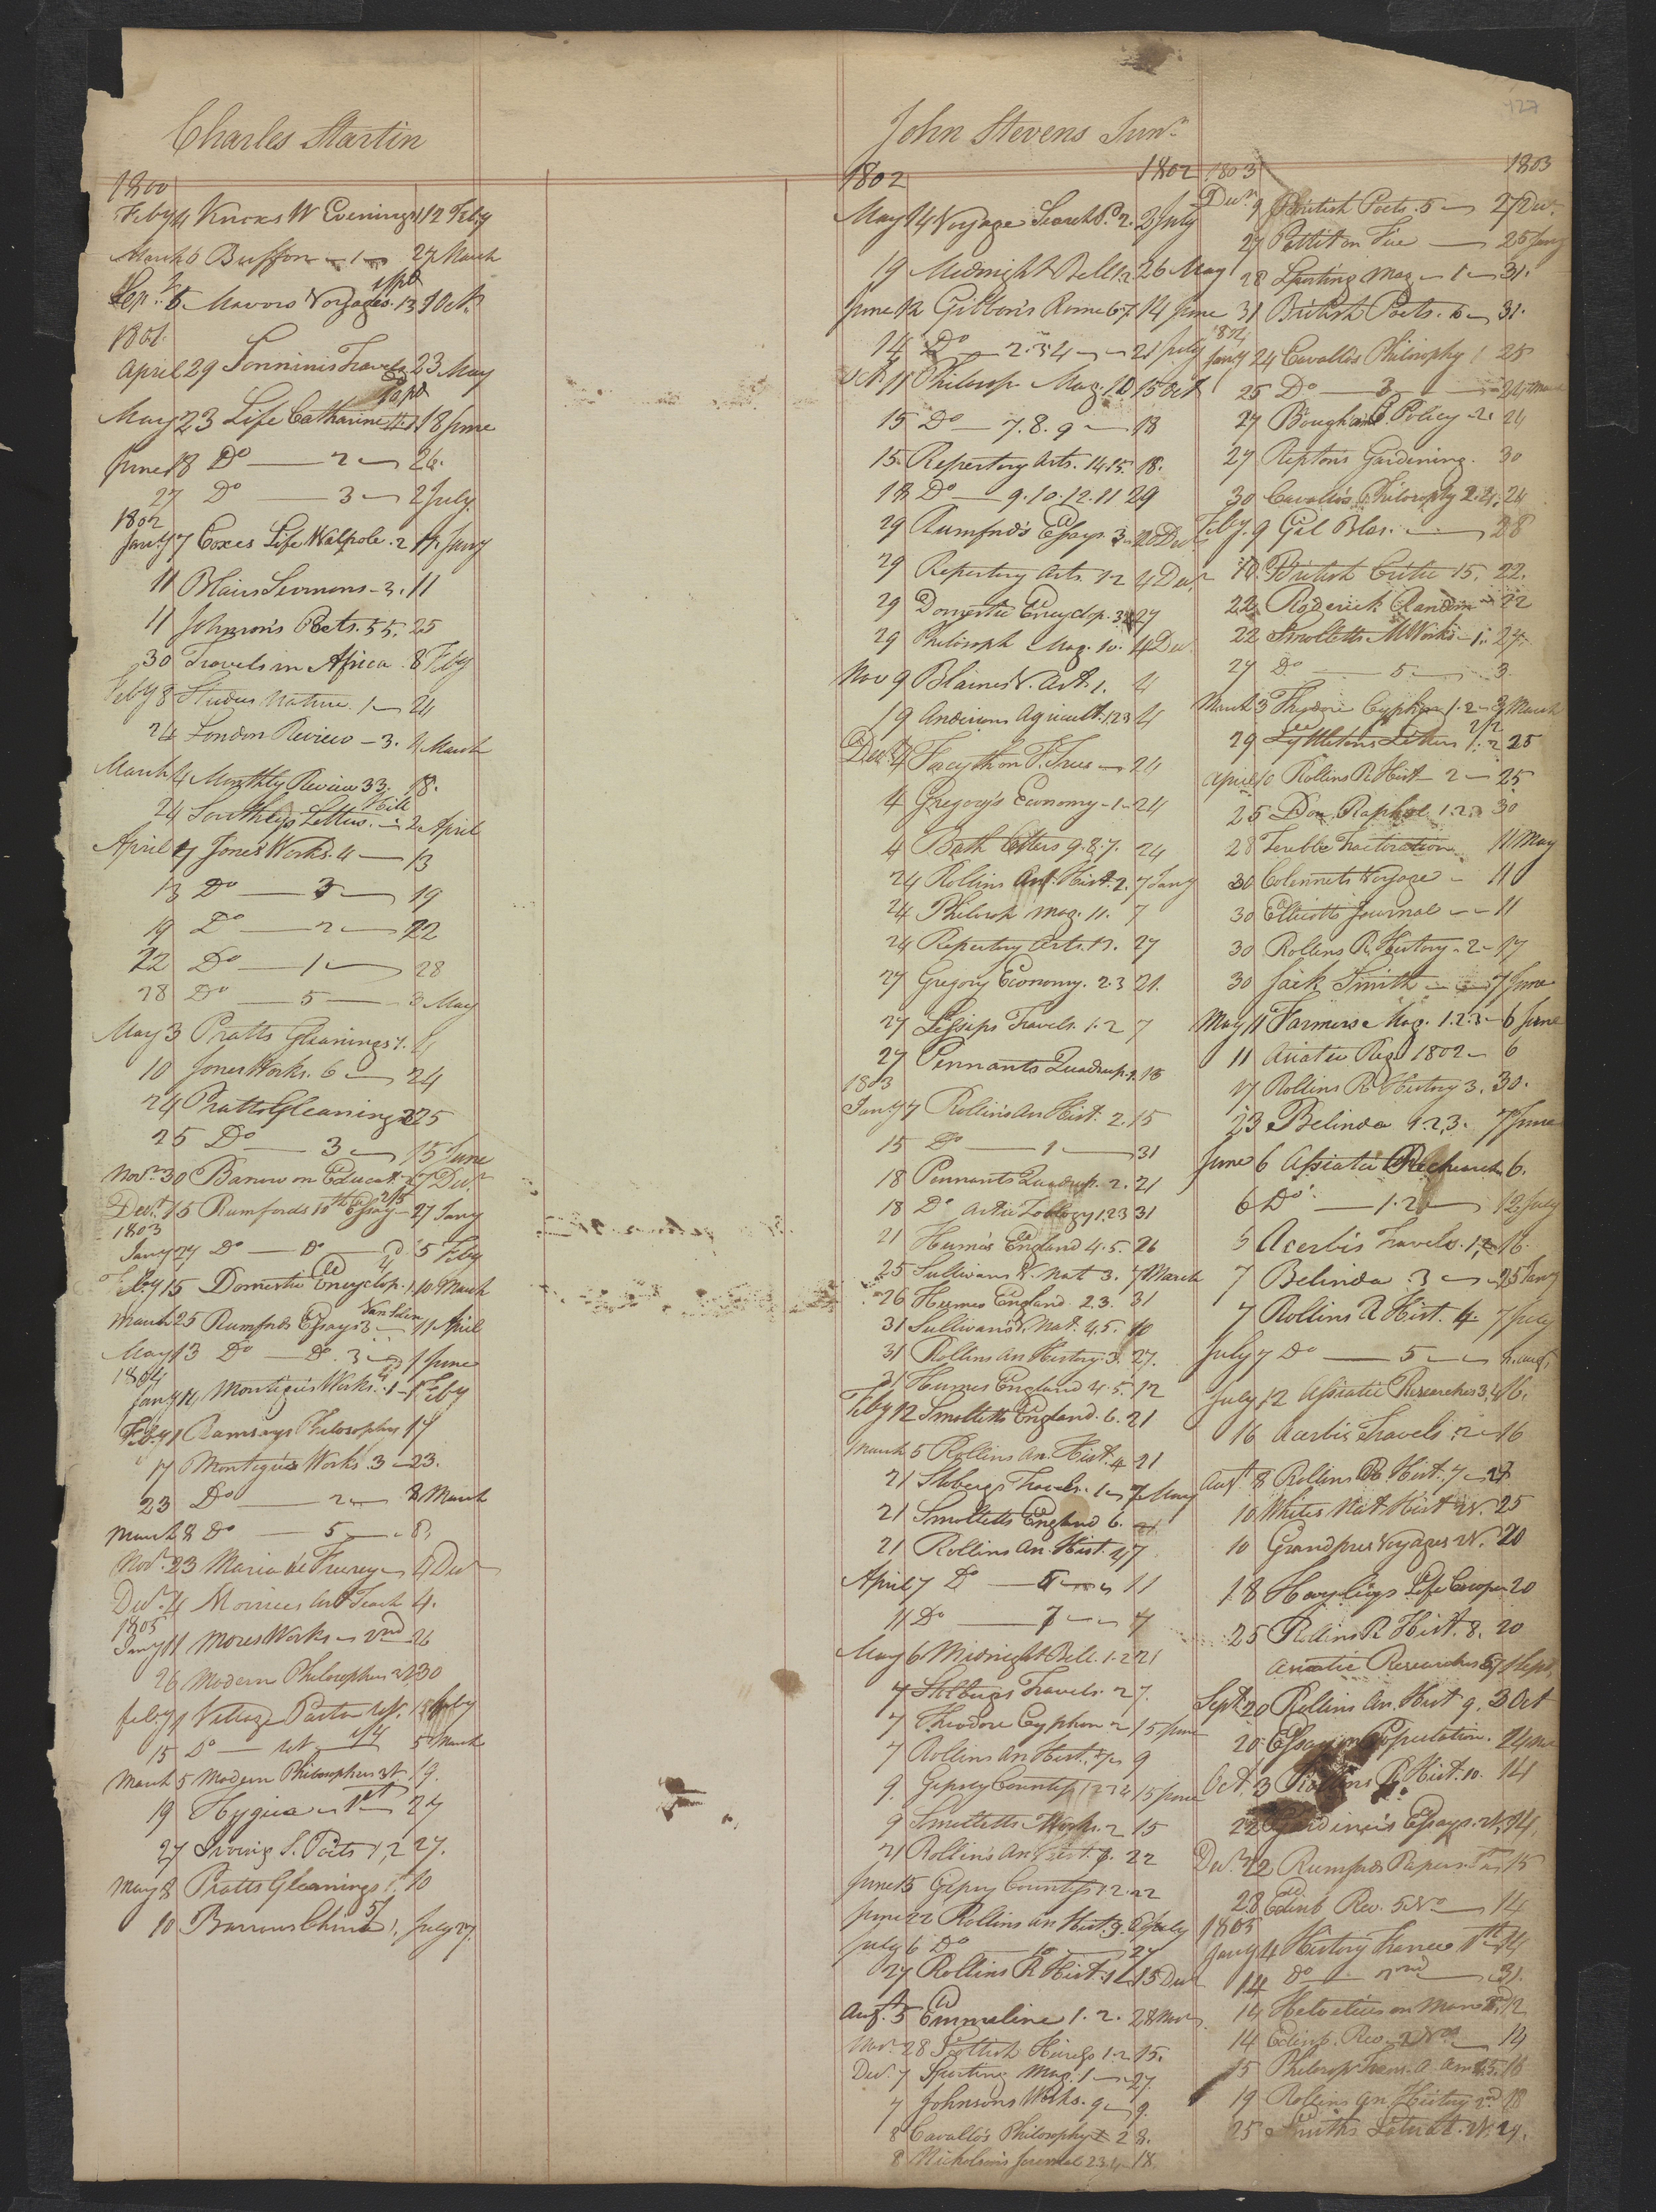 127
Charles Martin
1800
Feby 4 Knoxs W Evenings 1 12 Feby
March 6 Buffon - 1 - 27 March
Sep. 5 Mavors Voyages. 13 9 Oct.
1801.
April 29 Sonninis Travels 23 May
May 23 Life Catharine 1 18 June
June 18 Do — 2 — 26.
27 Do — 3 — 2 July.
1802
Jany 7 Coxes Life Walpole. 2 11 Jany
11 Blairs Sermons - 3. 11
11 Johnson's Poets. 55. 25
30 Travels in Africa. 8 Feby
Feby 8 Studies Nature. 1 — 24
24 London Review - 3. 4 March
March 4 Monthly Review 33. 18.
24 Southeys Letters. — 2 April
April 7 Jones Works. 4 — 13
13 Do — 3 — 19
19 Do — 2 — 22
22 Do — 1 — 28
28 Do — 5 — 3 May
May 3 Pratts Gleanings 1.
10 Jones Works. 6 — 24
24 Pratts Gleanings 2 25
25 Do — 3 — 15 June
Novr 30 Barrow on Educat. 7 Decr
Decr 15 Rumfords 10th Essay - 27 Jany
1803
Jany 27 Do — Do — 5 Feby
Feby 15 Domestic Encyclop. 1 10 March
March 25 Rumfords Essays 3 — 11 April
May 13 Do — Do. 3 — 1 June
1804
Jany 14 Montagues Works. 1 - 1 Feby
Feby 1 Ramsays Philosophy 17
17 Montagues Works. 3 - 23.
23 Do — 2 — 8 March
March 8 Do — 5 — 8.
Novr. 23 Maria de 4 Decr
Decr. 4 Morrices Art Teach 4.
1805
Jany 11 Mores Works — 2nd 26
26 Modern Philosophers 30
Feby 1 Village Pastor 15 Feby
15 Do — 5 March
March 5 Modern Philosophers 19.
19 Hygeia — 1st 27
27 Irvings S. Poets 1, 2 27.
May 8 Pratts Gleanings 1. 10
10 Barrows China 1, July 27.
John Stevens Junr
1802 1802
May 14 Voyage Search P. 2. 2 July
19 Midnight Bell 1.2 26 May
June 12 Gibbon's Rome 6.7 14 June
14 Do — 2.3.4 — 21 July
Oct. 11 Philosop. Mag. 10 15 Oct
15 Do — 7. 8. 9 — 18
15. Repertory Arts. 14.15. 18.
18 Do — 9. 10. 12. 11 29
29 Rumford's Essays. 3. 20 Decr
29 Repertory Arts. 12 4 Decr
29 Domestic Encyclop. 3 27
29 Philosoph. Mag. 10. 4 Decr
Nov 9 Blaines V. Art. 1. 4
19 Andersons Agricult. 1 2 3 4
Decr 4 Forsyth on F. Trees — 24
4 Gregory's Economy - 1 - 24
4 Bath Letters 9. 8. 7. 24
24 Rollins An. Hist. 2. 7 Jany
24 Philosop. Mag. 11. 7
24 Repertory Arts. 17. 27
27 Gregory Economy. 2 3 21.
27 Travels. 1. 2 7
27 Pennants Quadrup. 2. 18
1803
Jany 7 Rollins An Hist. 2. 15
15 Do — 1 — 31
18 Pennants Quadrup. 2. 21
18 Do Artic Zoology 1 2 3 31
21 Hume's England 4. 5. 26
25 Sullivans V. Nat 3. 7 March
26 Humes England. 2.3. 31
31 Sullivans V. Nat. 4. 5. 10
31 Rollins An History. 3. 27.
31 Humes England 4. 5. 12
Feby 12 Smolletts England. 6. 21
March 5 Rollins An. Hist. 4 21
21 Stobergs Travels. 1 — 7 May
21 Smolletts England 6. — 21
21 Rollins An. Hist. 4 7
April 7 Do — 5 — 11
11 Do — 7 — 7
May 6 Midnight Bell. 1.2 21
7 Stolbergs Travels. 2 7.
7 Theodore Cyphon 2 15 June
7 Rollins An Hist. 9
9. Gipsey Countess 1 2 3 4 15 June
9 Smolletts Works. 2 15
21 Rollins An Hist. 8. 22
June 15 Gipsey Countess 1. 2. 22
June 22 Rollins An Hist. 9. 6 July
July 6 Do — 10 — 27
27 Rollins R Hist. 1 15 Decr
Augt. 5 Emmeline 1. 2. 28 Novr.
Novr. 28 Scottish Chiefs 1.2 15.
Decr. 7 Sporting Mag. 1 — 27.
7 Johnsons Works. 9 — 9.
8 Cavallo's Philosophy 2 8.
8 Nicholsons Journal 2 3 4 18.
1803 1803
Decr. 9 British Poets. 5 — 27 Decr.
27 Pettit on Fire — 25 Jany
28 Sporting Mag - 1 — 31.
31 British Poets. 6 — 31.
1804
Jany 24 Cavallos Philosophy 1 25
25 Do — 3 — 24 March
27 Policy 2. 24
27 Reptons Gardening. 30
30 Cavallo's Philosophy 2. 4. 24
Feby. 9 Gil Blas. — 28
10. British Critic 15. 22.
22 Roderick Random — 22
22 Smolletts M Works - 1. 27.
27 Do — 5 — 3
March 3 Theodore Cyphon 1. 2 - 3 March
29 Lyttletons Letters 1. 2 25
April 10 Rollins R Hist — 2 — 25
25 Don Raphael 1. 2. 3 30
28 Terrible Tractoration 11 May
30 Colnetts Voyage — 11
30 Ellicotts Journal — 11
30 Rollins R. History - 2 - 17
30 Jack Smith — 7 June
May 11 Farmers Mag. 1. 2. 3 - 6 June
11 Asiatic Reg. 1802 — 6
17 Rollins R History 3. 30.
23 Belinda 1. 2. 3. 7 June
June 6 Asiatic Research 6.
6 Do — 1. 2 — 12 July
5 Acerbis Travels. 1, 2 16.
7 Belinda. 3 — 25 Jany
7 Rollins R Hist. 4. 7 July
July 7 Do — 5 — 4. Aug.
July 12 Asiatic Researches 3, 4 16.
16 Acerbis Travels. 2 — 16
Augt 8 Rollins R Hist. 7 — 27
10 Whites Nat Hist 25
10 Grandpres Voyages 20
18 Hayleys Life Cowper 20
25 Rollins R Hist. 8. 20
Asiatic Researches 6 7 Sept.
Sept. 20 Rollins An. Hist 9. 3 Oct
20 Essay on Population. 24
Oct. 3 Rollins R Hist. 10. 14
22 Essays. 24.
Decr. 12 Rumfords Papers. 15
28 Edinb Rev. 5 No — 14
1805
Jany 4 History France 1st 14
14 Do — 2nd — 31.
14 Helvetius on Man 12
14 Edinb. Rev. 2 No — 14
15 Philosop. Trans. A. Am. 5. 16
19 Rollins An. History 2nd 18
25 Smiths 29.